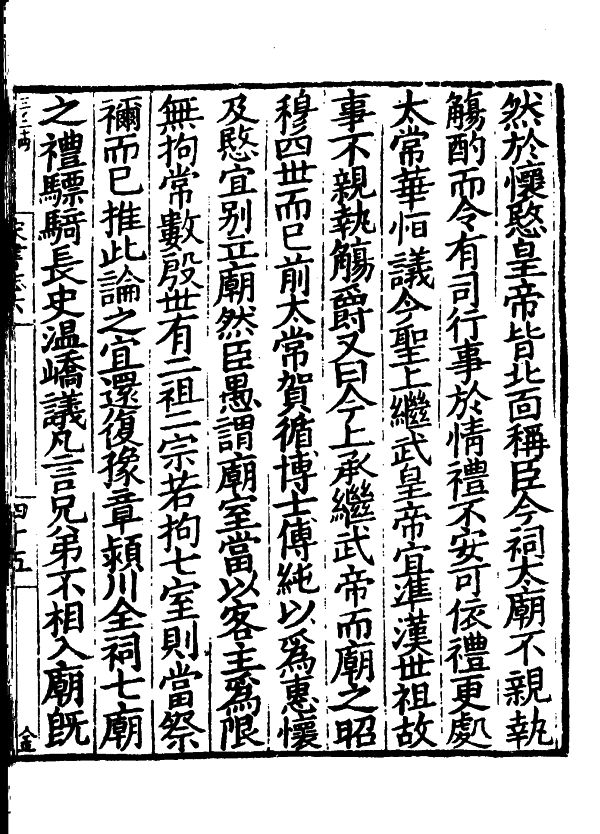 然於懷愍皇帝皆北面稱臣今祠太廟不親執
觴酌而令有司行事於情禮不安可依禮更處
太常華恒議今聖上繼武皇帝宜準漢世祖故
事不親執觴爵又曰今上承繼武帝而廟之昭
穆四世而已前太常賀循博士傅純以爲惠懷
及愍宜别立廟然臣愚謂廟室當以客主爲限
無拘常數殷世有二祖三宗若拘七室則當祭
禰而已推此論之宜還復豫章潁川全祠七廟
之禮驃騎長史温嶠議凡言兄弟不相入廟旣
四十五
金